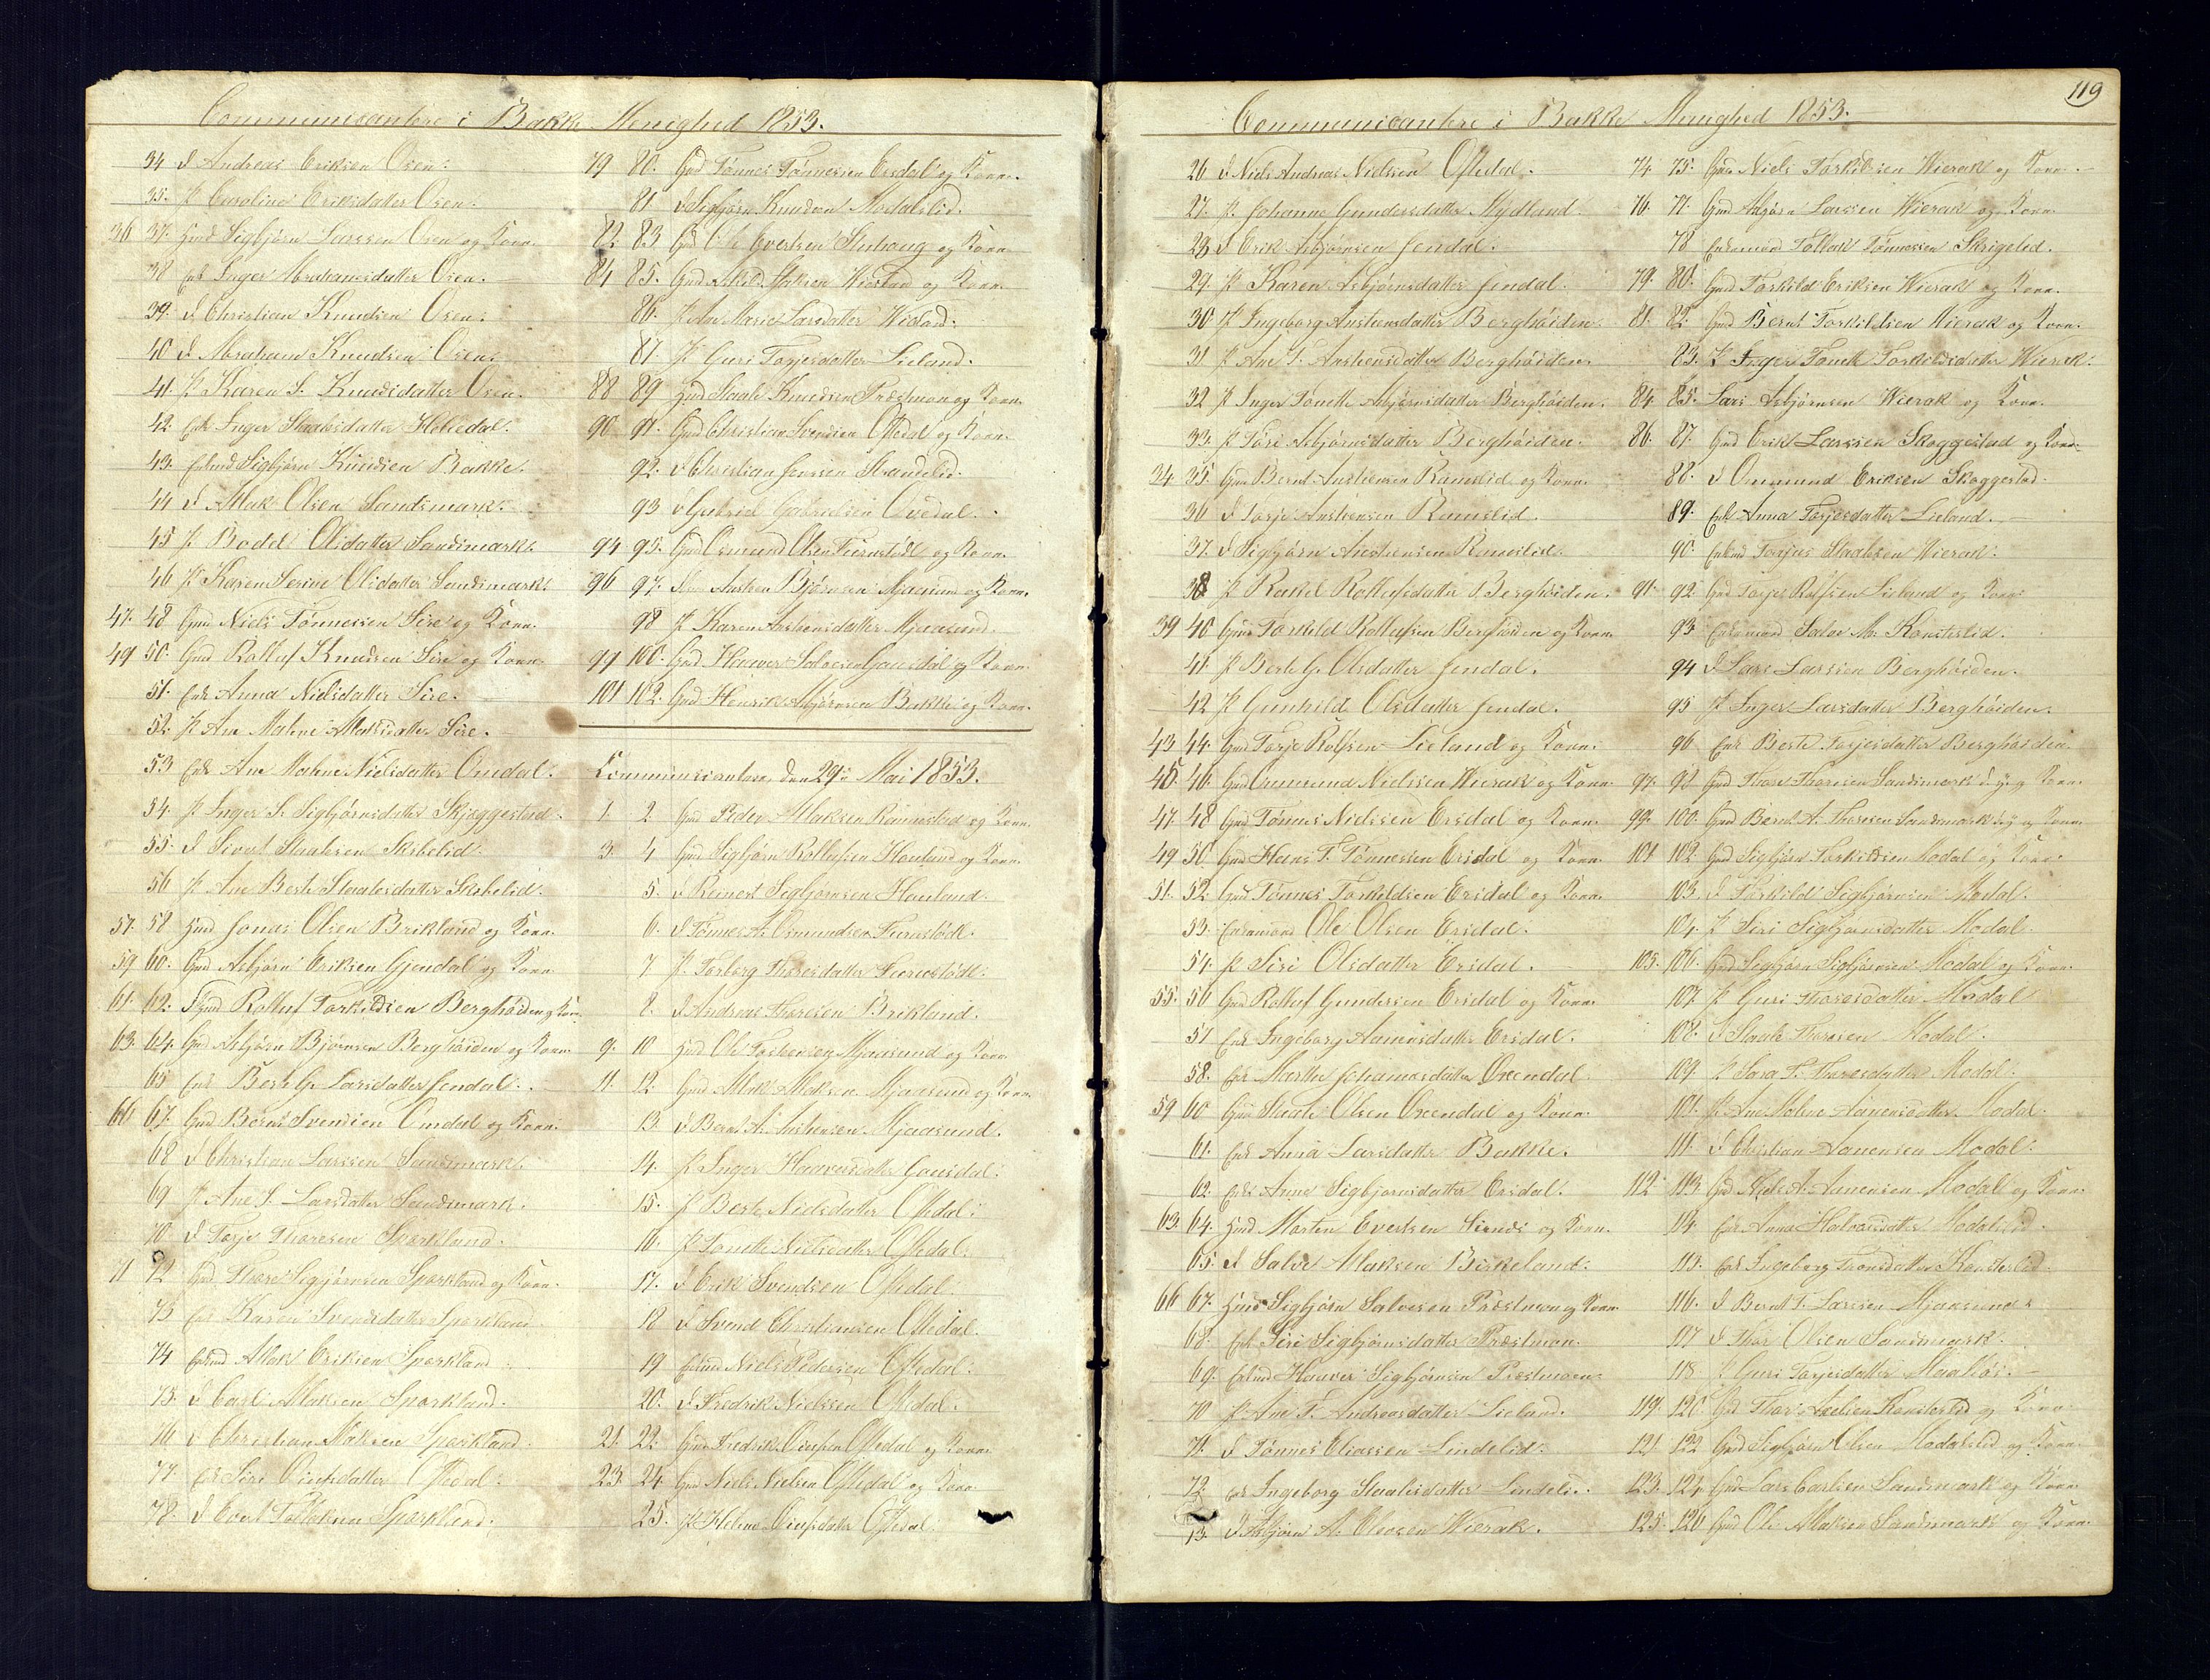 Communicantere i Bakke Menighed 1853.
34 J Andreas Eriksen Osen.
35. p Caroline Eriksdatter Osen.
36 37. Gmd Sigbjørn Larssen Osen og Kone.
38 Enk Inger Abrahamsdatter Osen.
39. J Christian Knudsen Osen.
40 J Abraham Knudsen Osen.
41. p Karen S. Knudsdatter Osen.
42. Enk Inger Staalesdatter
43. Enkmd Sigbjørn Knudsen Bakke.
44 J Atlak Olsen Sandsmark.
45 p Bodel Olsdatter Sandsmark.
46 p Karen Serine Olsdatter Sandsmark.
47. 48 Gmd Niels Tønnessen Sire og Kone.
49 50. Gmd Rolluf Knudsen Sire og Kone.
51. Enk Anna Nielsdatter Sire.
52. p Ane Malene Atlaksdatter Sire.
53 Enk Ane Malene Nielsdatter Omdal.
54. p Inger S. Sigbjørnsdatter Skjeggestad.
55. J Sivert Staalesen
56 p Ane Berte Staalesdatter
57. 58 Gmd Jonas Olsen Birkland og Kone.
59 60. Gmd Asbjørn Eriksen Gjendal og Kone.
61. 62. Gmd Rolluf Torkildsen Berghøiden og Kone.
63. 64. Gmd Asbjørn Bjørnsen Berghøiden og Kone.
65 Enk Berte G. Larsdatter Jendal.
66 67. Gmd Bernt Svendsen Omdal og Kone.
68 J Christian Larssen Sandsmark.
69 p Ane S. Larsdatter Sandsmark.
70 J Torje Thoresen Sparkland.
71 72 Gmd Thore Sigbjørnsen Sparkland og Kone.
73 Enk Karen Svendsdatter Sparkland
74 Enkmd Atlak Eriksen Sparkland
75. J Carl Atlaksen Sparkland.
76 J Christian Atlaksen Sparkland.
77. Enk Siri Olufsdatter Oftedal.
78. J Evert Tollaksen Sparkland.
79 80. Gmd Tønnes Tønnesen Ersdal og Kone.
81 J Sigbjørn Knudsen Modalslid.
82. 83 Gmd Ole Evertsen og Kone
84 85. Gmd og Kone.
86. p Ane Marie Larsdatter
87. p Guri Torjesdatter Lieland.
88 89 Gmd Staale Knudsen Præstmoen og Kone.
90 91. Gmd Christian Svendsen Oftedal og Kone.
92. J Christian Jenssen Strandelid.
93 J Gabriel Gabrielsen
94 95. Gmd Osmund Olsen og Kone.
96 97. Austen Bjørnsen Mjaasund og Kone.
98 p Karen Austensdatter Mjaasund.
99 100. Gmd Haaver Salvesen Gausdal og Kone.
101 102. Gmd Henrik Asbjørnsen Bakke og Kone.
Communicantere den 29de Mai 1853.
1. 2. Gmd Peder Atlaksen og Kone.
3. 4 Gmd Sigbjørn Rollufsen Houland og Kone.
5. J Reinert Sigbjørnsen Houland.
6. J Tønnes A. Osmundsen
7 p. Torborg Thoresdatter
8. J Andreas Thoresen Birkland.
9. 10 Gmd Ole Torkensen Mjaasund og Kone.
11. 12. Gmd Atlak Atlaksen Mjaasund og Kone.
13. J Bernt A. Austensen Mjaasund.
14. p Inger Haaversdatter Gausdal.
15. p Berte Nielsdatter Oftedal.
16. p Tonette Nielsdatter Oftedal.
17. J Erik Svendsen Oftedal.
18 J Svend Christiansen Oftedal.
19 Enkmd Niels Pedersen Oftedal.
20. J Fredrik Nielsen Oftedal.
21. 22. Gmd Fredrik Olufsen Oftedal og Kone.
23. 24. Gmd Niels Nielsen Oftedal og Kone
25. p Helene Olufsdatter Oftedal
119
Communicantere i Bakke Menighed 1853.
26 J Niels Andreas Nielsen Oftedal.
27. p. Johanne Gundersdatter Mydland.
28 J Erik Asbjørnsen Jendal.
29. p Karen Asbjørnsdatter Jendal.
30 p Ingeborg Austensdatter Berghøiden.
31 p Ane T. Austensdatter Berghøiden.
32 p Inger Tonette Asbjørnsdatter Berghøiden.
33. p Siri Asbjørnsdatter Berghøiden.
34. 35. Gmd Bernt Austensen Ramslid og Kone.
36 J Torje Austensen Ramslid.
37. J Sigbjørn Austensen Ramslid.
38 p Rakel Rollufsdatter Berghøiden.
39 40 Gmd Torkild Rollufsen Berghøiden og Kone.
41. p Berte G. Olsdatter Jendal.
42 p Gunhild Olsdatter Jendal.
43 44. Gmd Torje Rolfsen Lieland og Kone.
45 46. Gmd Ommund Nielsen Wierak og Kone.
47 48 Gmd Tønnes Nielssen Ersdal og Kone.
49 50. Gmd Hans T. Tønnessen Ersdal og Kone.
51. 52. Gmd Tønnes Torkildsen Ersdal og Kone.
53. Enkemand Ole Olsen Ersdal.
54. p Siri Olsdatter Ersdal.
55. 56 Gmd Rolluf Gundersen Ersdal og Kone.
57 Enk Ingeborg Aanensdatter Ersdal.
58. Enk Marthe Johannesdatter Ovendal.
59 60 Gmd Staale Olsen Ovendal og Kone.
61. Enk Anna Larsdatter Bakke.
62. Enk Anna Sigbjørnsdatter Ersdal.
63. 64. Gmd Morten Evertsen og Kone.
65. J Salve Atlaksen Birkeland.
66 67. Gmd Sigbjørn Salvesen Præstmoen og Kone.
68. Enk Siri Sigbjørnsdatter Præstmoen.
69. Enkmd Haaver Sigbjørnsen Præstmoen.
70 p Ane T. Andreasdatter Lieland.
71. J Tønnes Eliassen Lindelid.
72 Enk Ingeborg Staalesdatter Lindelid.
73. J Asbjørn A. Olsen Wierak.
74. 75. Gmd Niels Torkildsen Wierak og Kone.
76. 77. Gmd Asbjørn Larssen Wierak og Kone.
78 Enkemand Tollak Tønnessen Skrigelid.
79. 80. Gmd Torkild Eriksen Wierak og Kone.
81. 82. Gmd Bernt Torkildsen Wierak og Kone.
83. p Inger Tonette Torkildsdatter Wierak.
84. 85. Lars Asbjørnsen Wierak og Kone.
86. 87. Gmd Erik Larssen Skeggestad og Kone.
88. J Ommund Eriksen Skeggestad.
89. Enk Anna Torjesdatter Lieland.
90. Enkmd Torjus Staalesen Wierak.
91. 92. Gmd Torjer Rolfsen Lieland og Kone.
93 Enkemand Salve M. Konsterlid.
94 J Lars Larssen Berghøiden.
95 p Inger Larsdatter Berghøiden.
96 Enk Berte Torjesdatter Berghøiden.
97. 98 Gmd Thore Thoresen Sandsmark og Kone
99. 100. Gmd Bernt A. Thoresen Sandsmark og Kone
101 102. Gmd Sigbjørn Torkildsen Modal og Kone.
103. J Torkild Sigbjørnsen Modal.
104. p Siri Sigbjørnsdatter Modal.
105. 106. Gmd Sigbjørn Sigbjørnsen Modal og Kone.
107. p Guri Thoresdatter Modal
108. J Staale Thoresen Modal.
109. p Sara T. Thoresdatter Modal.
101. p Ane Malene Aanensdatter Modal.
111. J Christian Aanensen Modal.
112 113 Gmd Niels A. Aanensen Modal og Kone.
114. Enk Anna Halvorsdatter Modalslid.
115. Enk Ingeborg Thoresdatter Konsterlid.
116. J Bernt T. Larssen Mjaasund.
117 J Thor Olsen Sandsmark.
118 p Guri Torjesdatter
119. 120. Gmd Thore Konsterlid og Kone.
121. 122 Gmd Sigbjørn Olsen Modalslid og Kone.
123. 124. Gmd Lars Carlsen Sandsmark og Kone
125. 126 Gmd Ole Atlaksen Sandsmark og Kone.